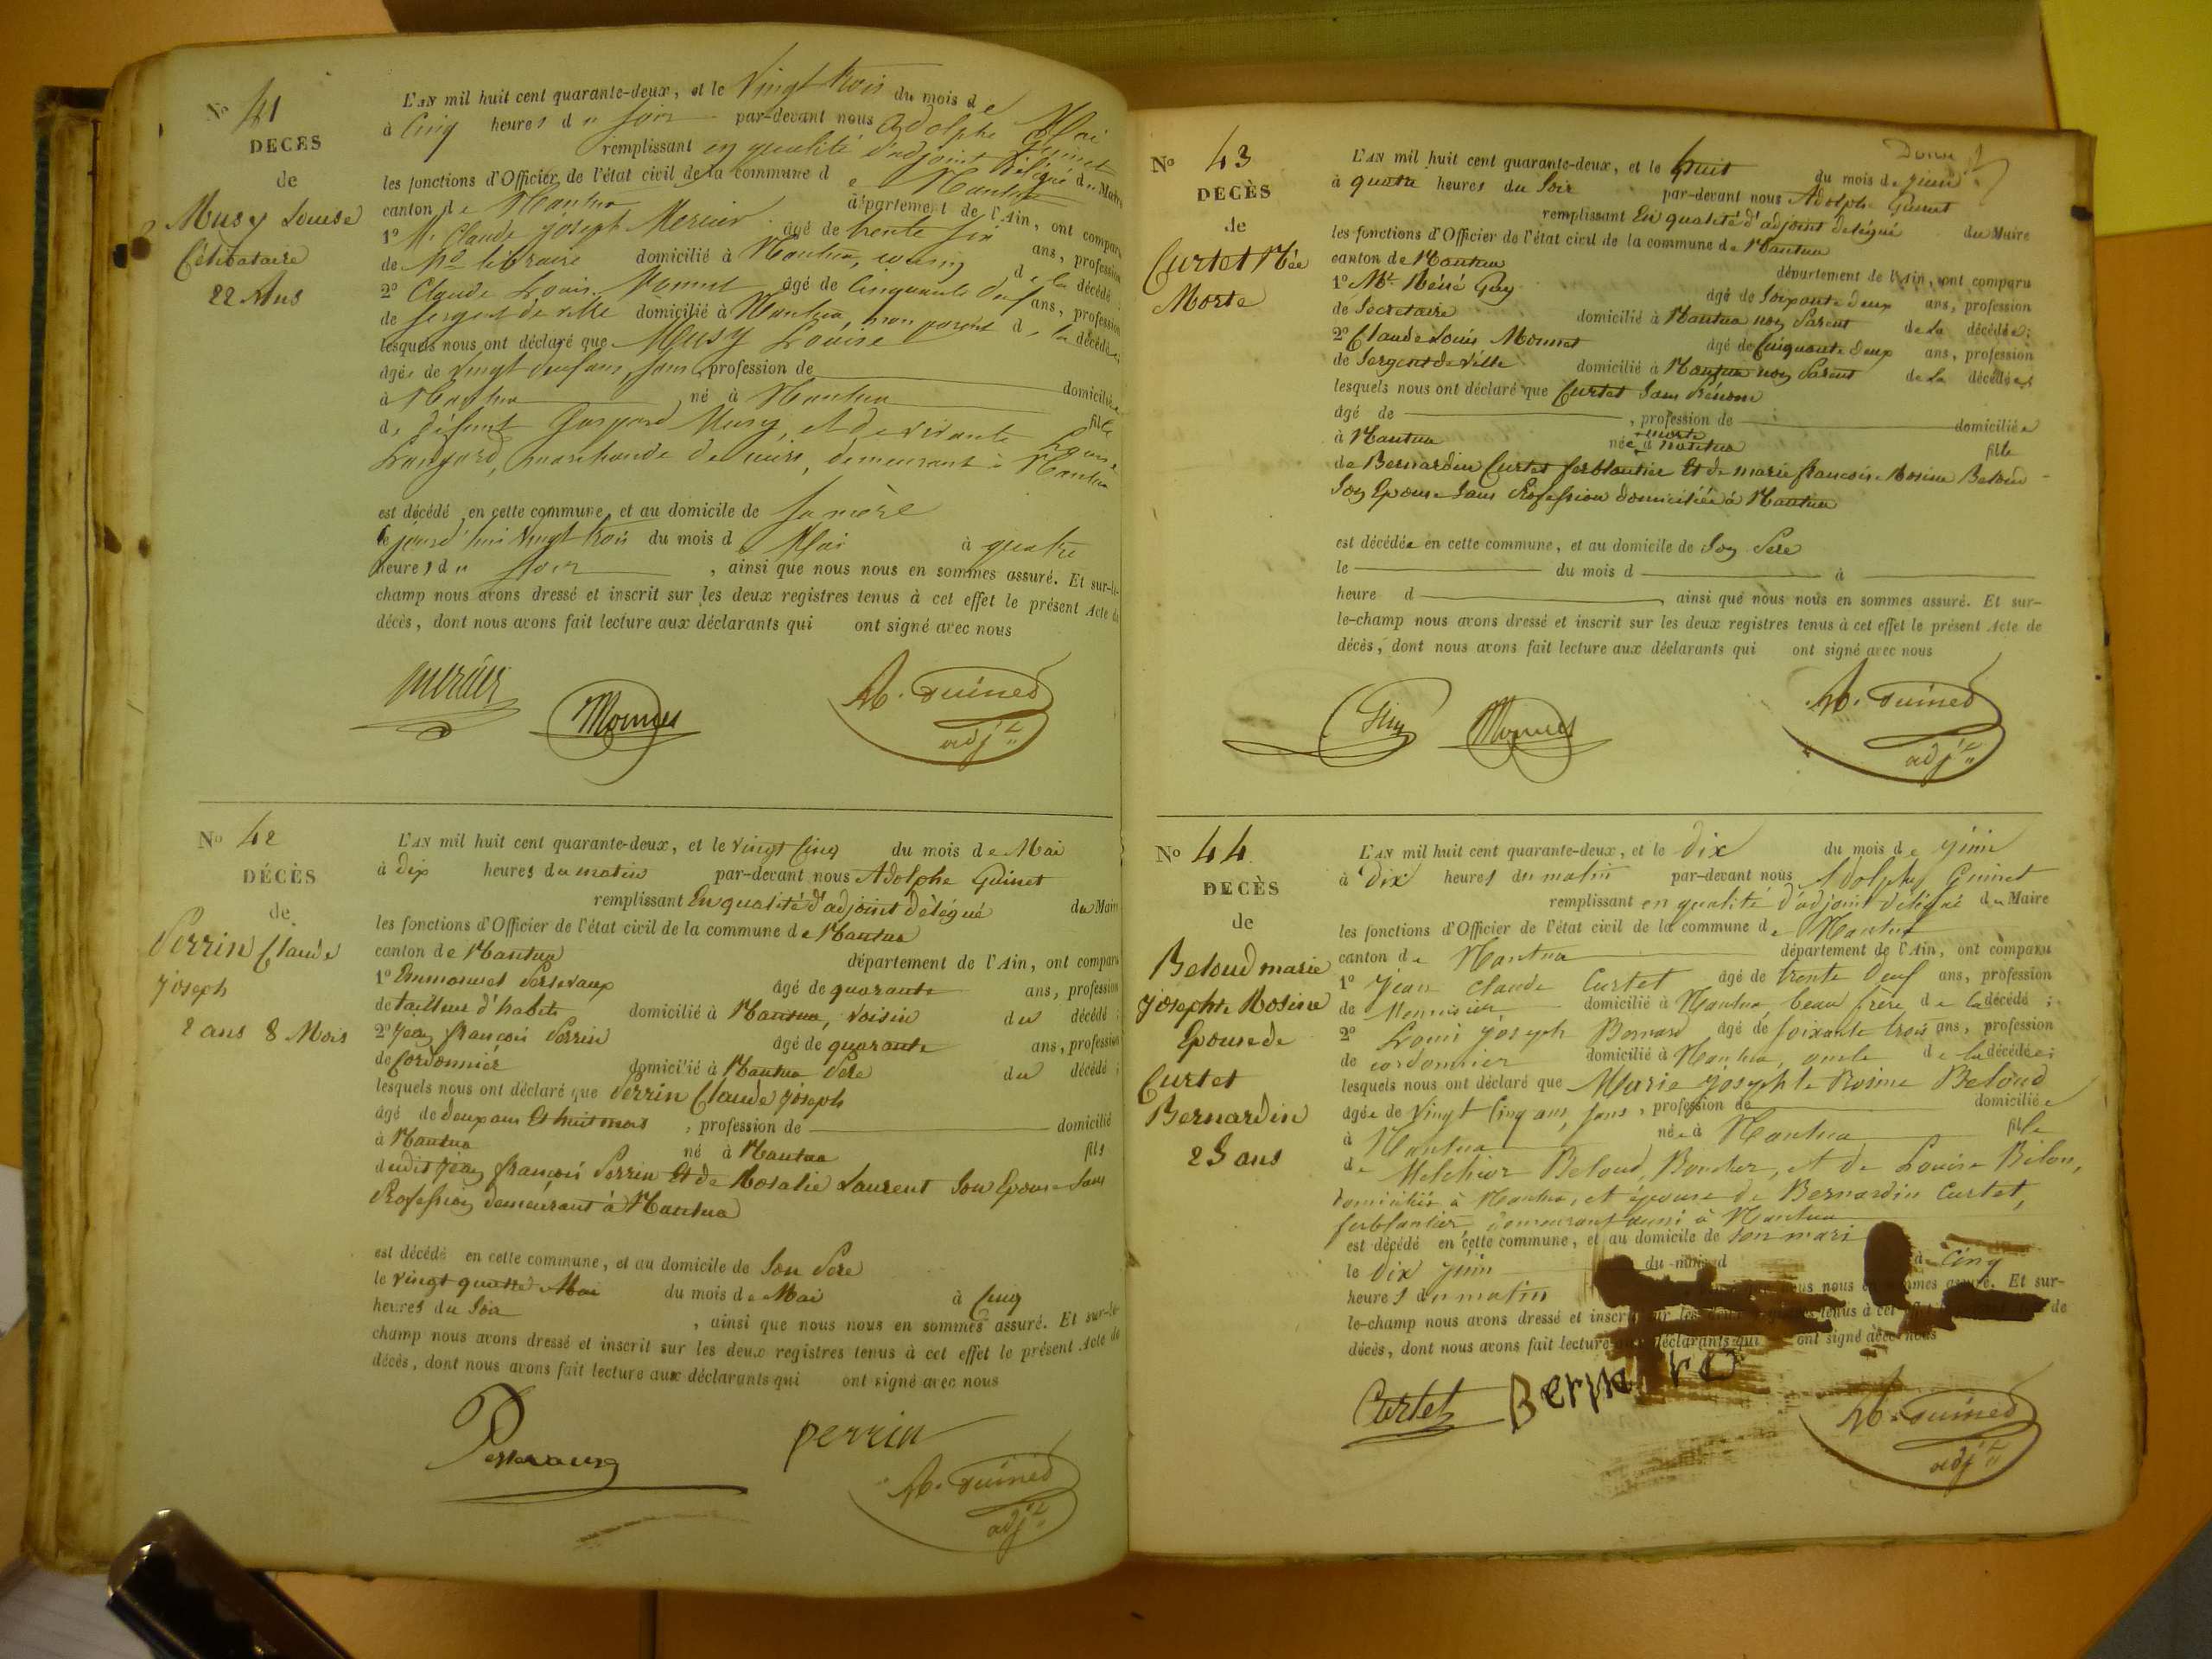 No 41
DECES
de
Musy Louise
Célibataire
22 Ans
L'AN mil huit cent quarante-deux, et le Vingt trois du mois de Mai
à Cinq heures du soir par-devant nous Adolphe Guinet
remplissant en qualité d'adjoint délégué du Maire
les fonctions d'Officier de l'état civil de la commune de Mantua
canton de Mantua département de l'Ain, ont comparu
1o Mr Claude joseph Mercier âgé de trente six ans, profession
de Md libraire domicilié à Mantua, cousin de la décédé
2o Claude Louis Monnet âgé de Cinquante deux ans, profession
de sergent de ville domicilié à Mantua, non parent de la décédée;
lesquels nous ont déclaré que Musy Louise
âgée de vingt deux ans, sans profession de domiciliée
à Mantua né à Mantua fille
de défunt Gaspard Musy, et de vivante Louise
marchande de cuirs, demeurant à Mantua
est décédé en cette commune, et au domicile de sa mère
le jourd'hui vingt trois du mois de Mai à quatre
heures du soir , ainsi que nous nous en sommes assuré. Et sur-le-
champ nous avons dressé et inscrit sur les deux registres tenus à cet effet le présent Acte de
décès, dont nous avons fait lecture aux déclarants qui ont signé avec nous
Mercier Monnet A. Guinet
adjt
No 42
DÉCÈS
de
Perrin Claude
joseph
2 ans 8 Mois
L'AN mil huit cent quarante-deux, et le vingt Cinq du mois de Mai
à dix heures du matin par-devant nous Adolphe Guinet
remplissant En qualité d'adjoint délégué du Maire
les fonctions d'Officier de l'état civil de la commune de Mantua
canton de Mantua département de l'Ain, ont comparu
1o Emmanuel âgé de quarante ans, profession
de tailleur d'habits domicilié à Mantua, voisin du décédé;
2o Jean françois Perrin âgé de quarante ans, profession
de Cordonnier domicilié à Mantua Père du décédé;
lesquels nous ont déclaré que Perrin Claude joseph
âgé de deux ans Et huit mois , profession de domicilié
à Mantua né à Mantua fils
dudit jean françois Perrin Et de Rosalie Laurent Son Epouse Sans
Profession demeurant à Mantua
est décédé en cette commune, et au domicile de Son Père
le vingt quatre Mai du mois de Mai à Cinq
heures du Soir , ainsi que nous nous en sommes assuré. Et sur-le-
champ nous avons dressé et inscrit sur les deux registres tenus à cet effet le présent Acte de
décès, dont nous avons fait lecture aux déclarants qui ont signé avec nous
perrin
A. Guinet
adjt
No 43
DÉCÈS
de
Curtet Née
Morte
L'AN mil huit cent quarante-deux, et le huit du mois de juin
à quatre heures du Soir par-devant nous Adolphe Guinet
remplissant En qualité d'adjoint délégué du Maire
les fonctions d'Officier de l'état civil de la commune de Mantua
canton de Mantua département de l'Ain, ont comparu
1o Mr Guy âgé de Soixante deux ans, profession
de Secretaire domicilié à Mantua non Parent de la décédée;
2o Claude Louis Monnet âgé de Cinquante deux ans, profession
de Sergent de Ville domicilié à Mantua non Parent de la décédée;
lesquels nous ont déclaré que Curtet Sans Prénom
âgé de , profession de domiciliée
à Mantua née morte à Mantua fille
de Bernardin Curtet ferblantier Et de marie francoise Rosine Beloud
Son Epouse Sans Profession domiciliée à Mantua
est décédée en cette commune, et au domicile de Son Père
le du mois d à
heure d , ainsi que nous nous en sommes assuré. Et sur-
le-champ nous avons dressé et inscrit sur les deux registres tenus à cet effet le présent Acte de
décès, dont nous avons fait lecture aux déclarants qui ont signé avec nous
Guy Monnet A. Guinet
adjt
No 44
DÉCÈS
de
Beloud marie
josephte Rosine
Epouse de
Curtet
Bernardin
25 ans
L'AN mil huit cent quarante-deux, et le dix du mois de juin
à Dix heures du matin par-devant nous Adolphe Guinet
remplissant en qualité d'adjoint délégué du Maire
les fonctions d'Officier de l'état civil de la commune de Mantua
canton de Mantua département de l'Ain, ont comparu
1o Jean Claude Curtet âgé de trente deux ans, profession
de Menuisier domicilié à Mantua, beau frère de la décédé;
2o Louis joseph Bernard âgé de soixante trois ans, profession
de cordonnier domicilié à Mantua, oncle de la décédée;
lesquels nous ont déclaré que Marie josephte Rosine Beloud
âgée de vingt Cinq ans, sans , profession de domiciliée
à Mantua née à Mantua fille
de Melchior Beloud, et de Louise
domiciliés à Mantua, et épouse de Bernardin Curtet,
ferblantier, demeurant aussi à Mantua
est décédé en cette commune, et au domicile de son mari
le Dix juin du mois d à Cinq
heures du matin nous nous en sommes assuré. Et sur-
le-champ nous avons dressé et inscrit sur les deux registres tenus à cet effet de
décès, dont nous avons fait lecture aux déclarants qui ont signé avec nous
Curtet Bernard A. Guinet
adjt